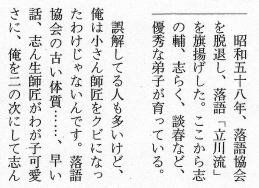 昭和五十八年、落語協会
を脱退し、落語「立川流」
を旗揚げした。ここから志
の輔、志らく、談春など、
優秀な弟子が育っている。
誤解してる人も多いけど、
俺は小さん師匠をクビになっ
たわけじゃないんです。落語
協会の古い体質……、早い
話、志ん生師匠がわが子可愛
さに、俺を二の次にして志ん